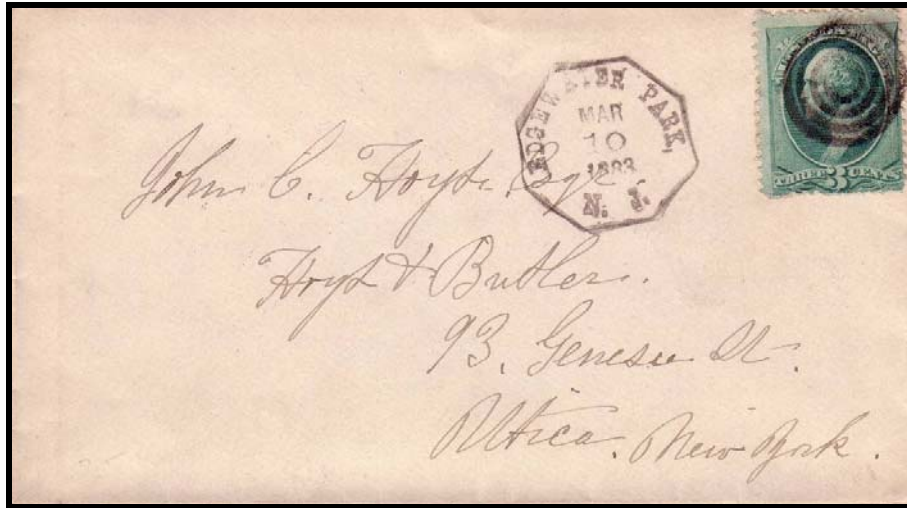 EDGEWATER PARK,
MAR
10
1883
N. J.
THREE 3 CENTS
John C. Hoyt. Esqr
Hoyt & Butler.
93. Genesee St.
Utica. New York.